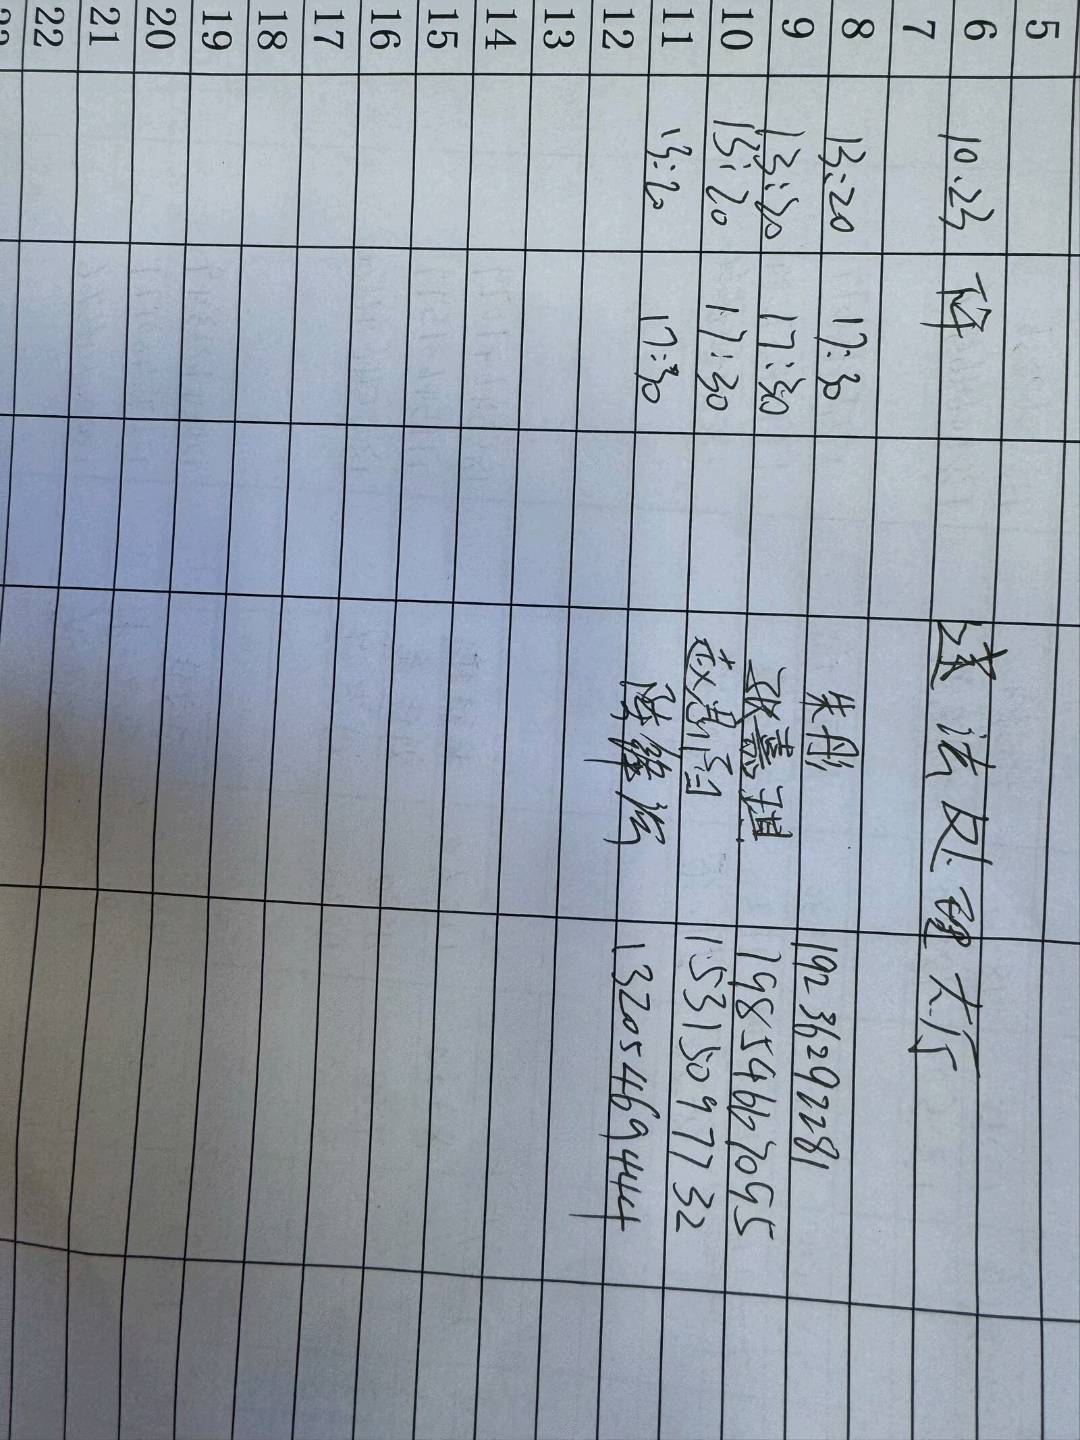 5
6 10.23 下午 违法处理大厅
7
8 13:20 17:30 朱彤 19236292281
9 13:30 17:30 张嘉祺 19854663095
10 13:20 17:30 赵禹 15315097732
11 13:20 17:30 13205469444
12
13
14
15
16
17
18
19
20
21
22